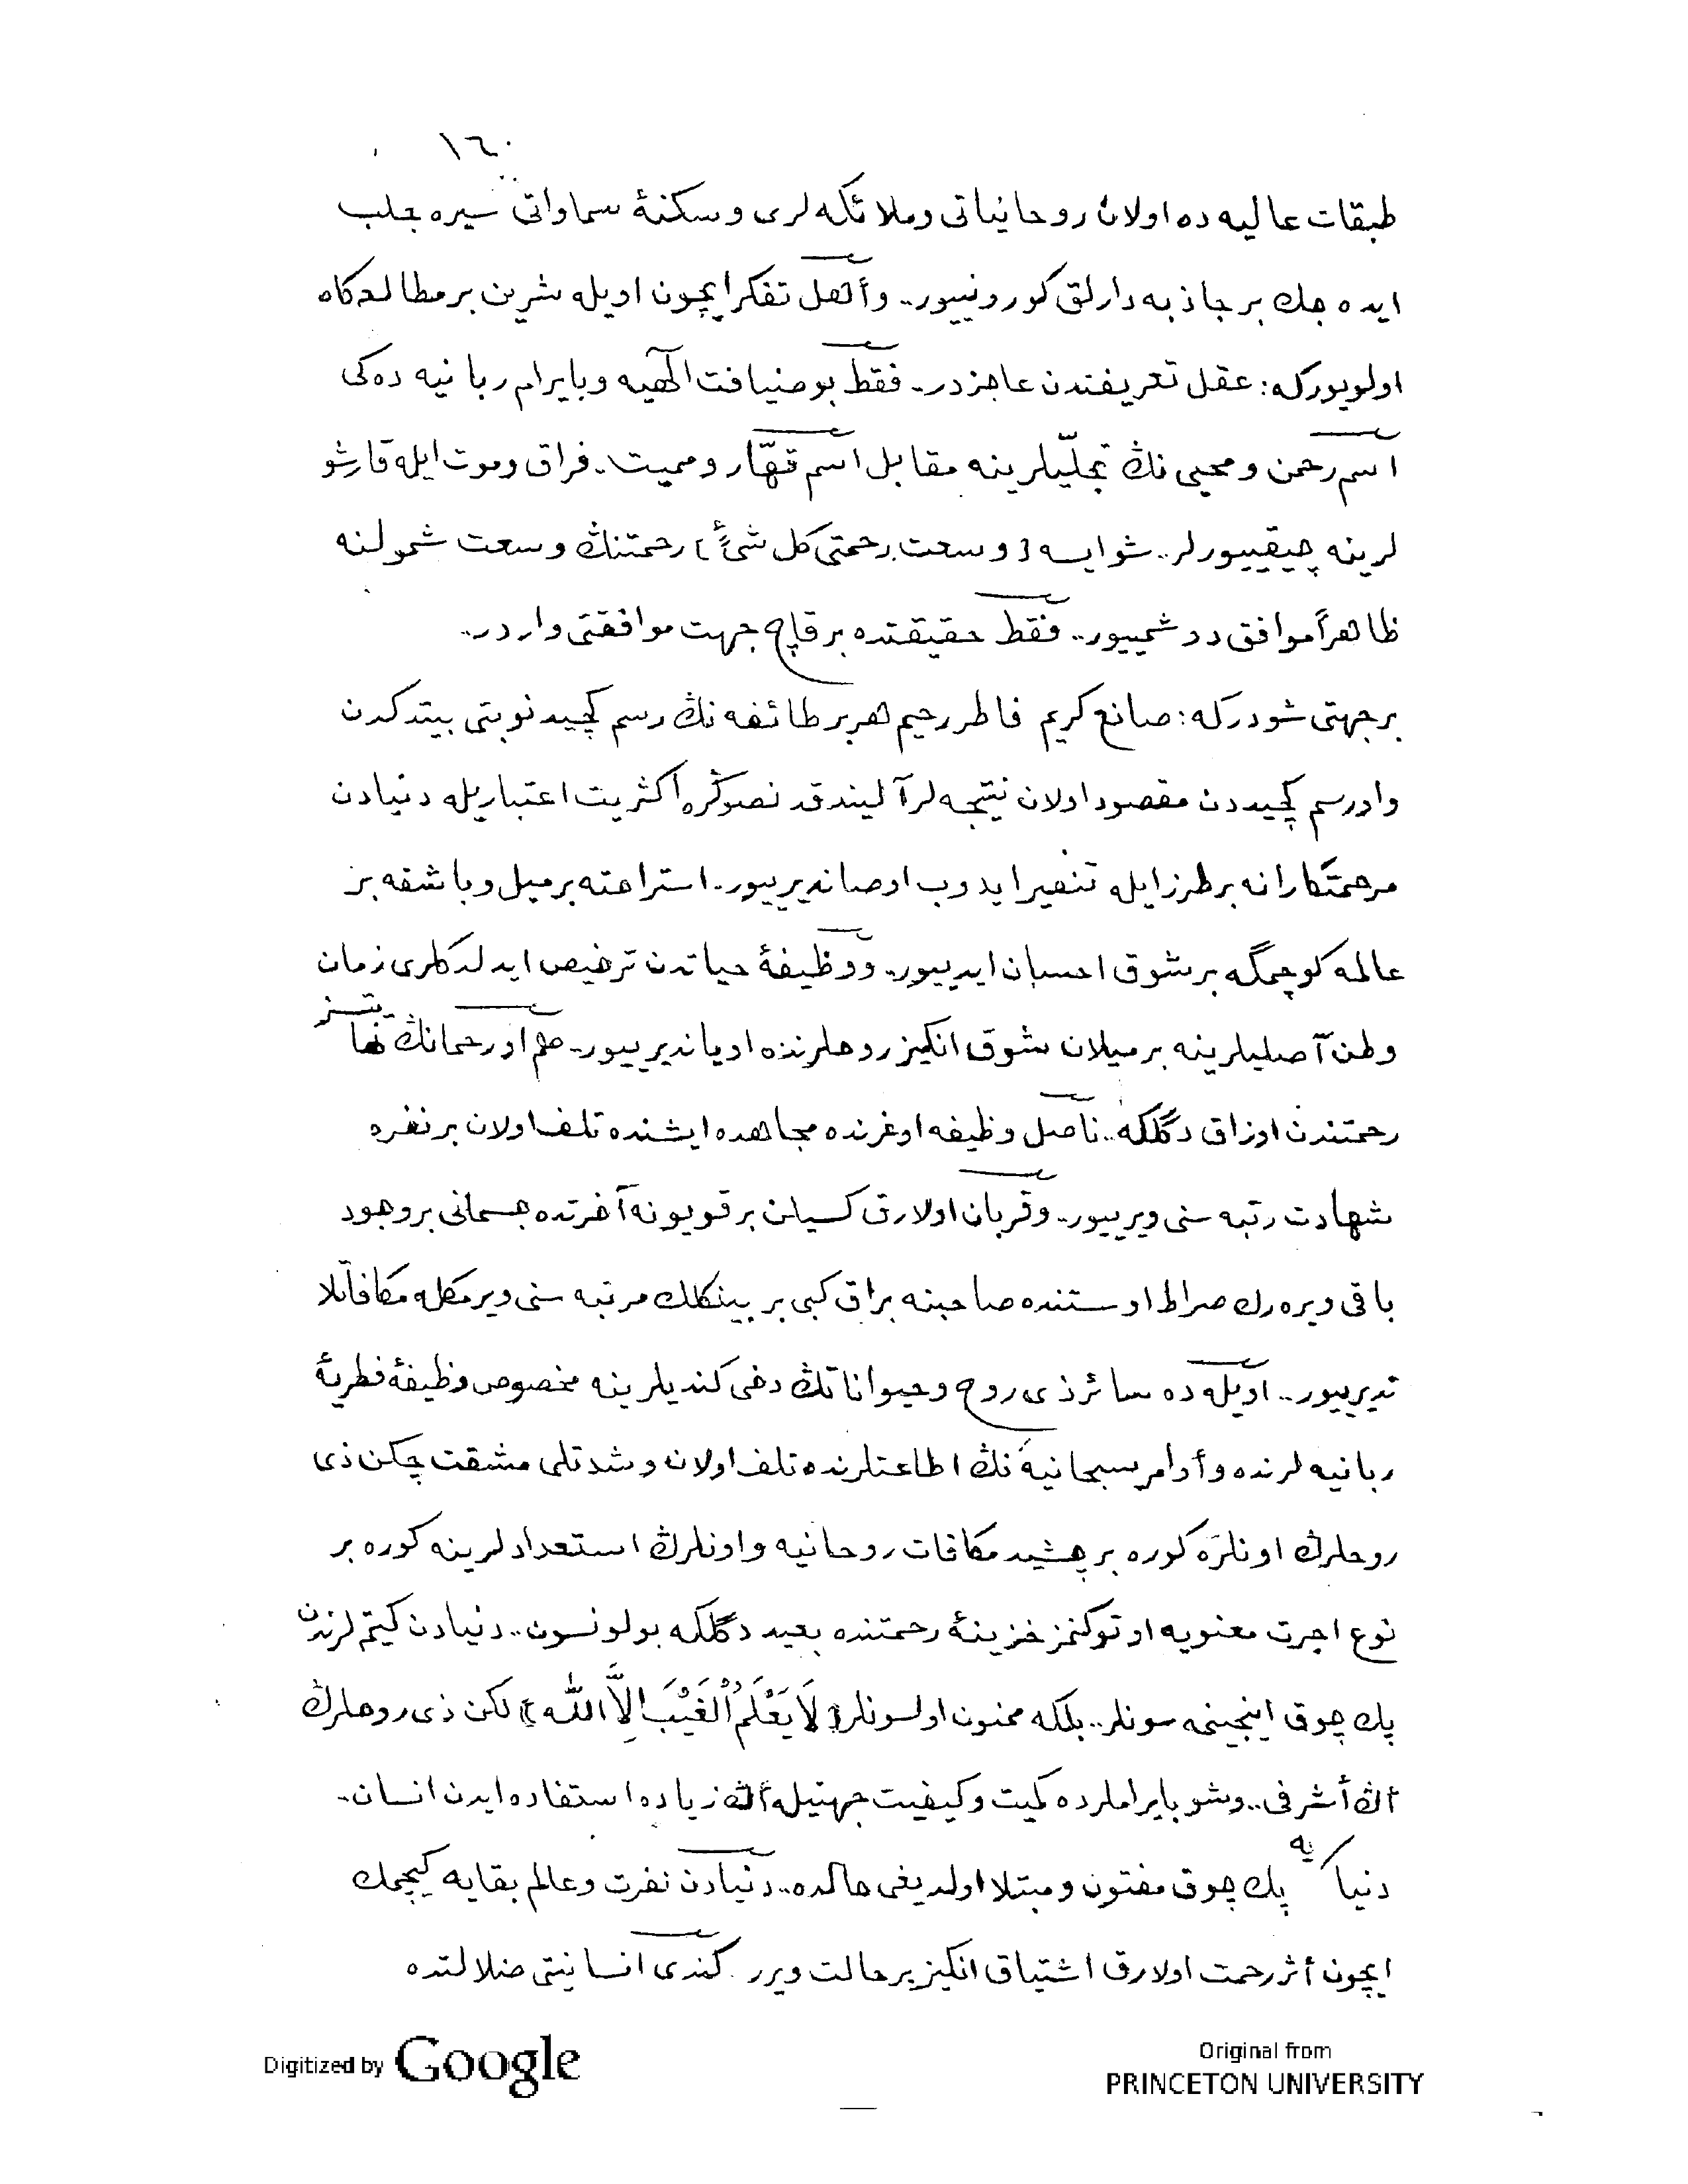 ١٦٠
طبقات عاليه ده اولان روحانياتى وملائكه لرى و سكنهٔ سماواتى سيره جلب
ايده جك بر جاذبه دارلق كورونييور.. وأهل تفكر ايچون اويله شرين بر مطالعه كاه
اولويوركه: عقل تعريفندن عاجزدر.. فقط بو ضيافت الٓهيه وبايرام ربانيه ده كى
اسم رحمن و محيى نڭ تجلّيلرينه مقابل اسم قهّار و مميت.. فراق وموت ايله قارشو
لرينه چيقييورلر.. شو ايسه ﴿ وسعت رحمتى كل شئ ﴾ رحمتنڭ وسعت شمولنه
ظاهراً موافق دوشمييور.. فقط حقيقتده بر قاچ جهت موافقتى واردر..
بر جهتى شودركه: صانع كريم فاطر رحيم هر بر طائفه نڭ رسم كچيد نوبتى بيتدكدن
واو رسم كچيددن مقصود اولان نتيجه لر آليندقدنصوڭره اكثريت اعتباريله دنيادن
مرحمتكارانه بر طرز ايله تنفير ايدوب اوصانديرييور.. استراحته بر ميل وباشقه بر
عالمه كوچمگه بر شوق احسان ايدييور.. ووظيفهٔ حياتدن ترخيص ايدلدكلرى زمان
وطن آصليلرينه بر ميلان شوق انكيز روحلرنده اويانديرييور.. هم او رحمانڭ نهايتسز
رحمتندن اوزاق دگلكه.. ناصل وظيفه اوغرنده مجاهده ايشنده تلف اولان بر نفره
شهادت رتبه سنى ويرييور.. وقربان اولارق كسيلن بر قويونه آخرتده جسمانى بر وجود
باقى ويره رك صراط اوستنده صاحبنه براق كبى بر بينكلك مرتبه سنى ويرمكله مكافاتلا
نديرييور.. اويله ده سائر ذى روح وحيواناتڭ دخى كنديلرينه مخصوص وظيفهٔ فطريهٔ
ربانيه لرنده وأوامر سبحانيه نڭ اطاعتلرنده تلف اولان و شدتلى مشقت چكن ذى
روحلرڭ اونلره كوره بر چشيد مكافات روحانيه واونلرڭ استعدادلرينه كوره بر
نوع اجرت معنويه او توكنمز خزينهٔ رحمتنده بعيد دگلكه بولونسون.. دنيادن كيتملرندن
پك چوق اينجينمه سونلر.. بلكه ممنون اولسونلر ﴿ لَا يَعْلَمُ الْغَيْبَ اِلَّا اللّٰه ﴾ لكن ذى روحلرڭ
أڭ أشرفى.. وشو بايراملرده كميت وكيفيت جهتيله أڭ زياده استفاده ايدن انسان..
دنيايه پك چوق مفتون ومبتلا اولديغى حالده.. دنيادن نفرت وعالم بقايه كيچمك
ايچون أثر رحمت اولارق اشتياق انكيز بر حالت ويرر. كندى انسانيتى ضلالتده
Digitized by Google
Original from
PRINCETON UNIVERSITY